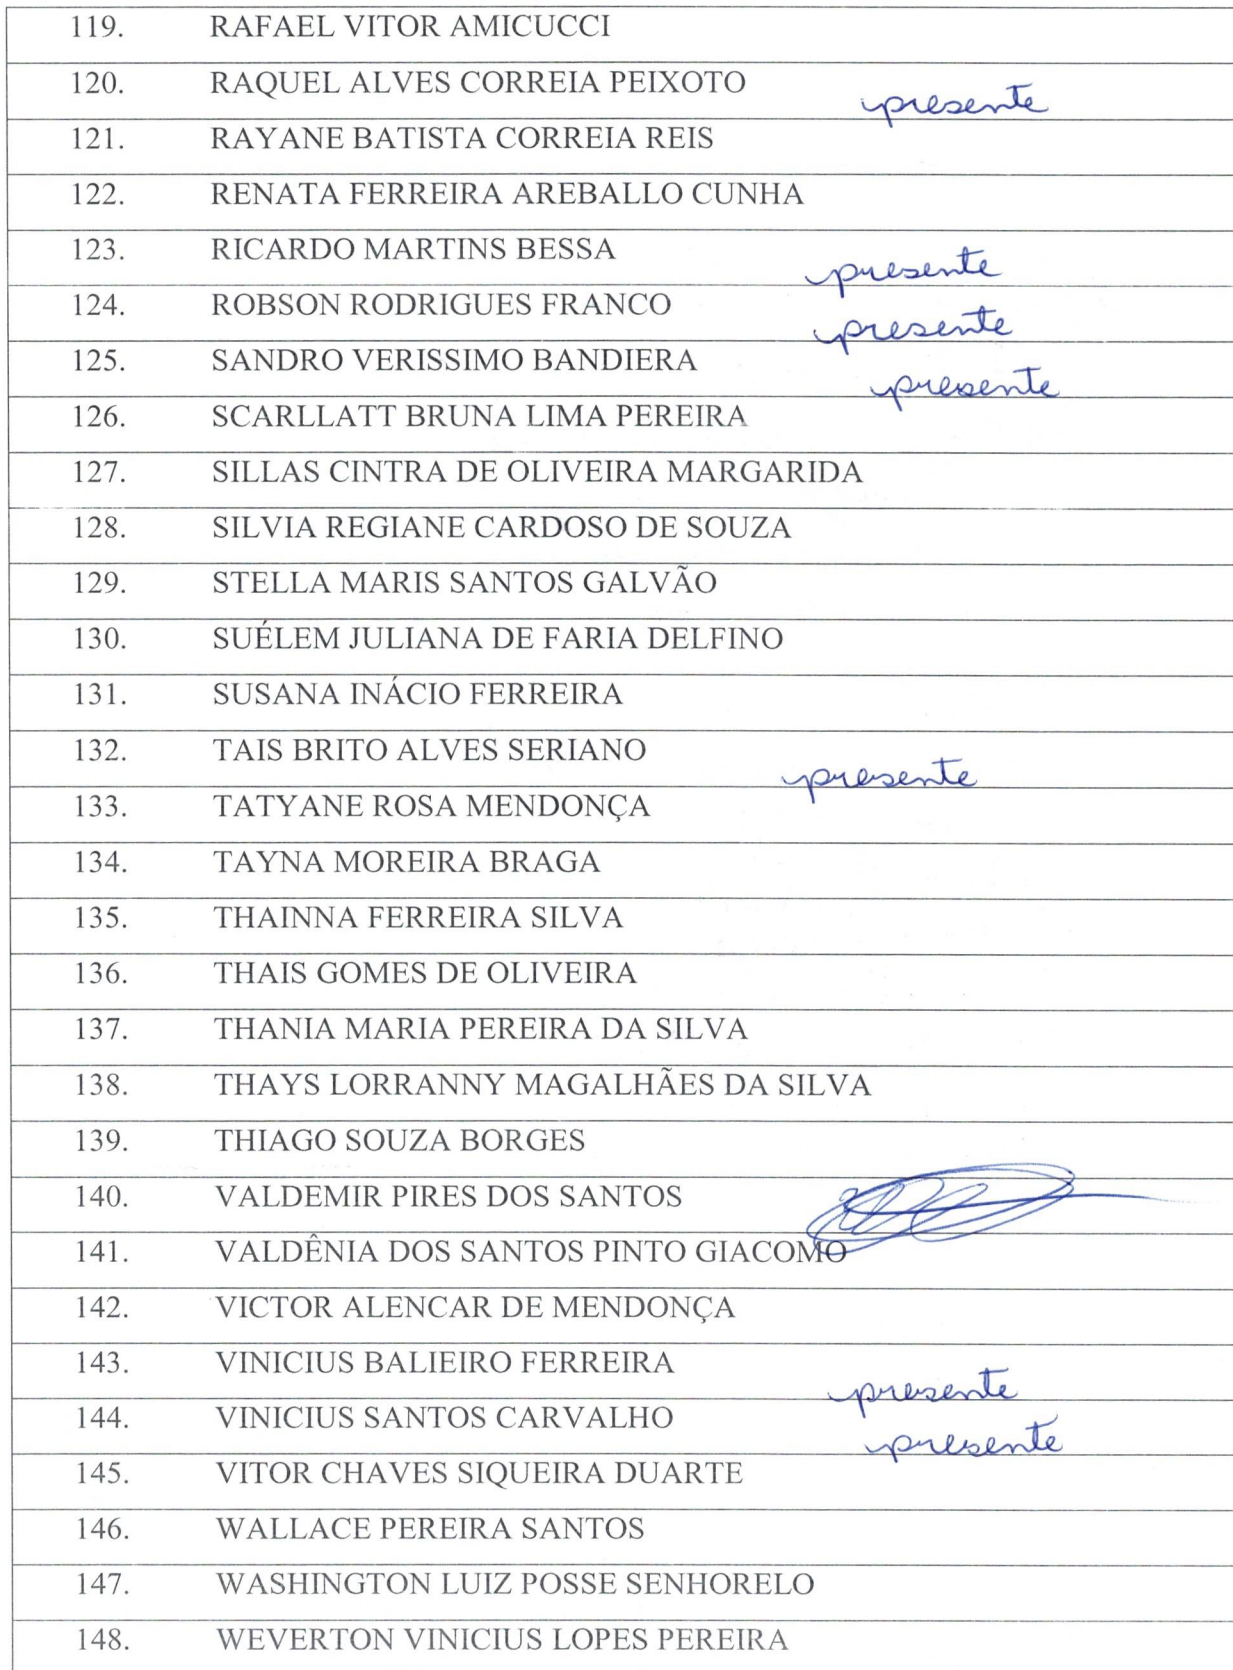 119. RAFAEL VITOR AMICUCCI
120. RAQUEL ALVES CORREIA PEIXOTO presente
121. RAYANE BATISTA CORREIA REIS
122. RENATA FERREIRA AREBALLO CUNHA
123. RICARDO MARTINS BESSA presente
124. ROBSON RODRIGUES FRANCO presente
125. SANDRO VERISSIMO BANDIERA presente
126. SCARLLATT BRUNA LIMA PEREIRA
127. SILLAS CINTRA DE OLIVEIRA MARGARIDA
128. SILVIA REGIANE CARDOSO DE SOUZA
129. STELLA MARIS SANTOS GALVÃO
130. SUÉLEM JULIANA DE FARIA DELFINO
131. SUSANA INÁCIO FERREIRA
132. TAIS BRITO ALVES SERIANO presente
133. TATYANE ROSA MENDONÇA
134. TAYNA MOREIRA BRAGA
135. THAINNA FERREIRA SILVA
136. THAIS GOMES DE OLIVEIRA
137. THANIA MARIA PEREIRA DA SILVA
138. THAYS LORRANNY MAGALHÃES DA SILVA
139. THIAGO SOUZA BORGES
140. VALDEMIR PIRES DOS SANTOS
141. VALDÊNIA DOS SANTOS PINTO GIACOMO
142. VICTOR ALENCAR DE MENDONÇA
143. VINICIUS BALIEIRO FERREIRA presente
144. VINICIUS SANTOS CARVALHO presente
145. VITOR CHAVES SIQUEIRA DUARTE
146. WALLACE PEREIRA SANTOS
147. WASHINGTON LUIZ POSSE SENHORELO
148. WEVERTON VINICIUS LOPES PEREIRA